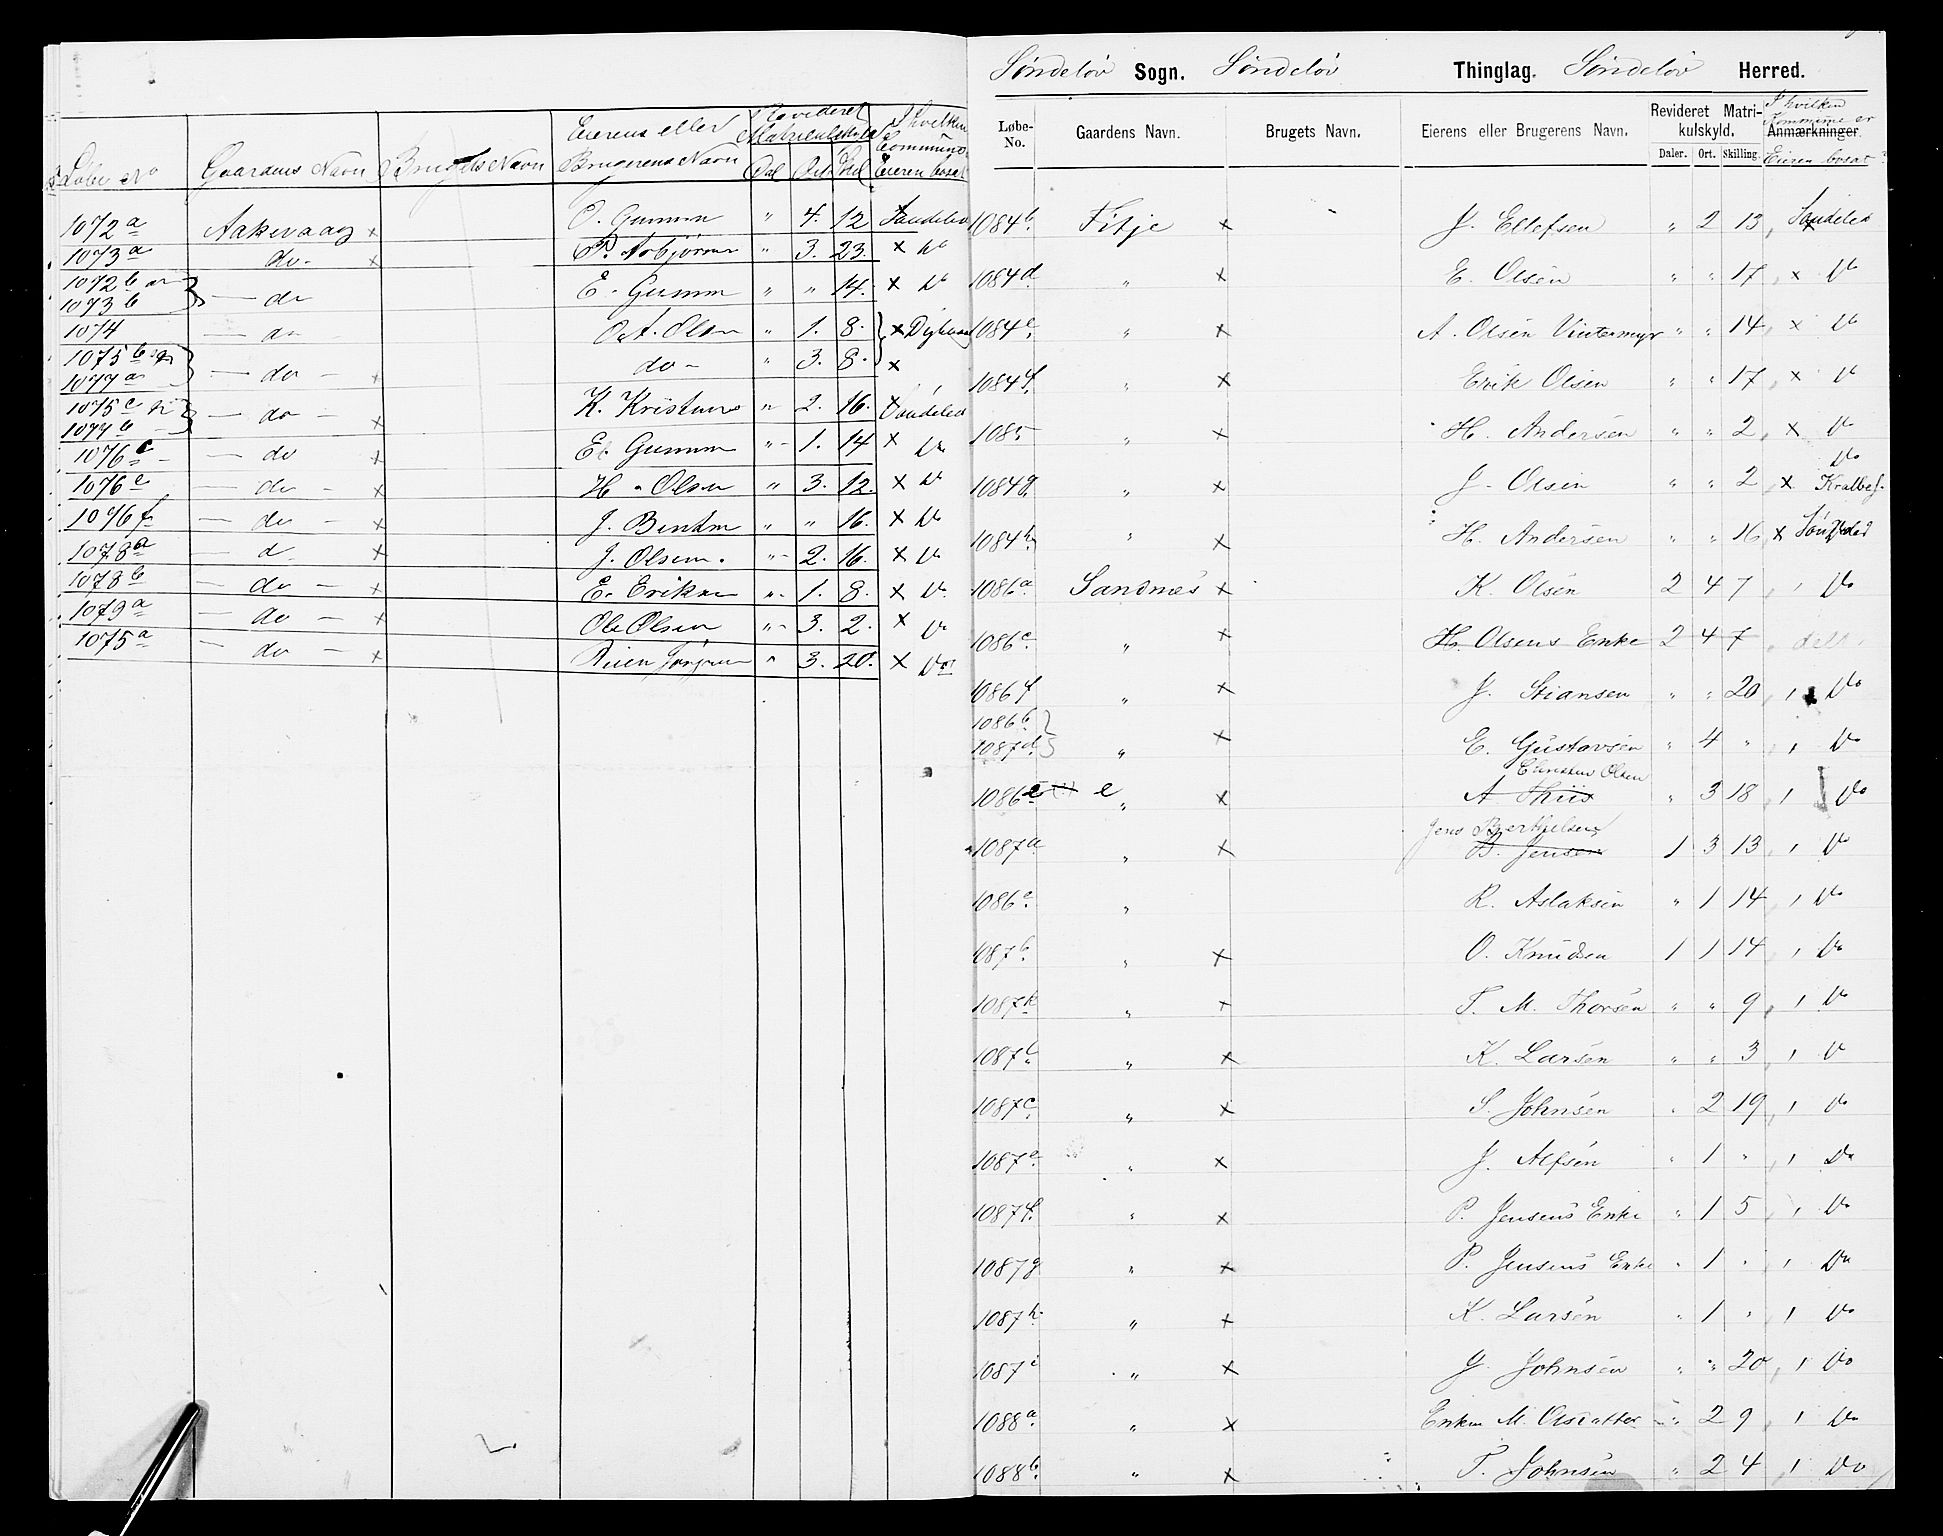 Løbe No Gaardens Navn Brugets Navn Eierens eller Brugerens Navn Revideret Matrikulskyld Dal Ort Skil I hvilken Commune Eieren bosat
1072 a Aakevaag x O. Gunnu " 4. 12 Søndeled
1073 a do - x P. Asbjørnsen " 3. 23. x do
1072 b og 1073 b } — do E. Gunnu " " 14. x do
1074 — do O. A. Olsen " 1. 8. } x
1075 b og 1077 a } — do — x do - " 3. 8. x
1075 c og 1077 b } — do - x K. Kristens " 2. 16. x Søndeled
1076 c — do x E. Gunnu " 1. 14 x do
1076 e — do - x H. Olsen " 3. 12. x do
1076 f — do - x J. " " 16. x do
1078 a — d. x J. Olsen. " 2. 16. x do
1078 b — do — x E. Eriksen " 1. 8. x do
1079 a — do — x Ole Olsen " 3. 2. x do
1075 a — do — x " 3. 20. x do
Søndeløv Sogn. Søndeløv Thinglag. Søndeløv Herred.
Løbe-No. Gaardens Navn. Brugets Navn. Eierens eller Brugerens Navn. Revideret Matrikulskyld. Daler. Ort. Skilling. Anmærkninger. I hvilken Kommune er Eieren bosat
1084 b Fitje x J. Ellefsen " 2 13, Søndeled
1084 d " x E. Olsen " " 17, x do
1084 e " x A. Olsen Vintermyr " " 14, x do
1084 f " x Erik Olsen " " 17, x do
1085 " x H. Andersen " " 2, x do
1084 g " x J. Olsen " " 2, x do
1084 h " x H. Andersen " " 16, x Søndeled
1086 a Sandnes x K. Olsen 2 4 7, , do
1086 c " x H. Olsens Enke 2 4 7, delt
1086 f " x J. Stiansen " " 20, , do
1086 b 1087 d } " x E. Gustavsen " 4 " , do
Christen Olsen
1086 e e " x A. Thiis " 3 18, , do
Jens Berthelsen
1087 a " x B. Jensen 1 3 13, , do
1086 e " R. Aslaksen " 1 14, , do
1087 b " x O. Knudsen 1 1 14, , do
1087 k " x T. M. Thorsen " " 9, , do
1087 l " x K. Larsen " " 3, , do
1087 c " x S. Johnsen " 2 19, , do
1087 e " x J. Alfsen " 1 " , , do
1087 f " x P. Jensens Enke " 1 5, , do
1087 g " x P. Jensens Enke " 1 " , do
1087 h " x K. Larsen " 1 " , do
1087 i " x G. Johnsen " " 20, , do
1088 a " x Enken M. Olsdatter " 2 9, , do
1088 b " x T. Johnsen " 2 4, , do